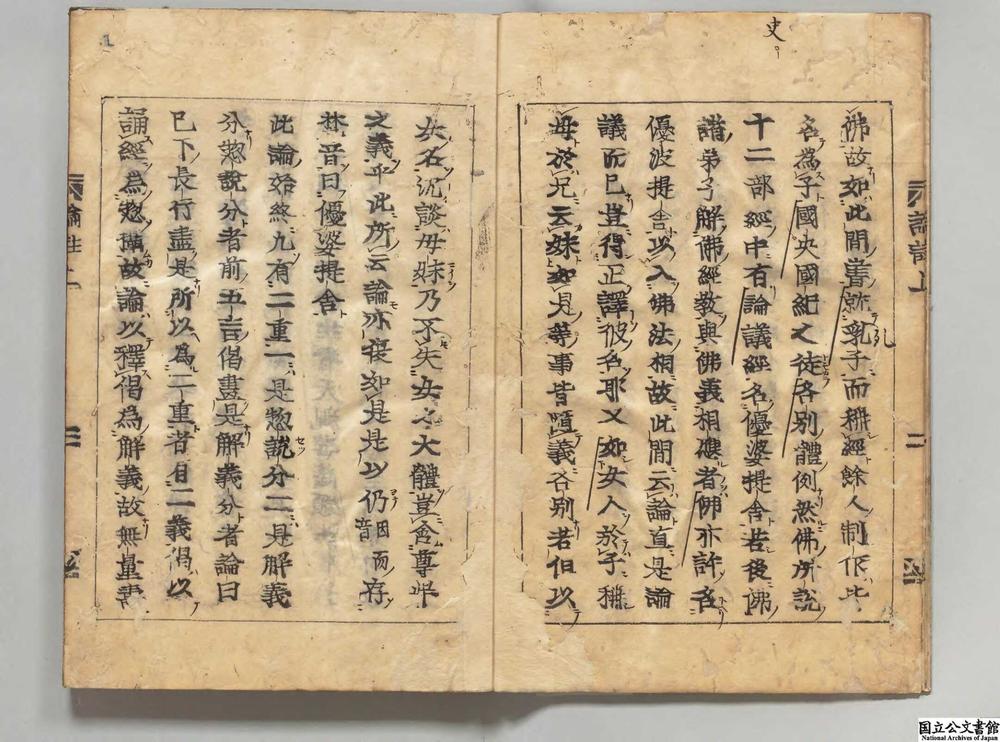 史
佛故如此間書就乳子而稱經餘人制作比
孔
名為子國央國紀之徒各別體例然佛所說
十二部經中有論議經名優婆提舍若後佛
諸弟子解佛經教與佛義相應者佛亦許名
優波提舍以入佛法相故此間云論直是論
議而已豈得正譯彼名耶又如女人於子稱
母於兄云妹如是等事皆隨義各別若但以
論註上
二
女名汎談母妹乃不失女之大體豈含尊卑
之義乎此所云論亦復如是是以仍因而存
音
林音曰優婆提舍
此論始終九有二重一是惣說分二是解義
分惣說分者前五言偈盡是解義分者論曰
已下長行盡是所以為二重者自二義偈以
誦經為惣攝故論以釋偈為解義故無量壽
論註上
三
国立公文書館
National Archives of Japan